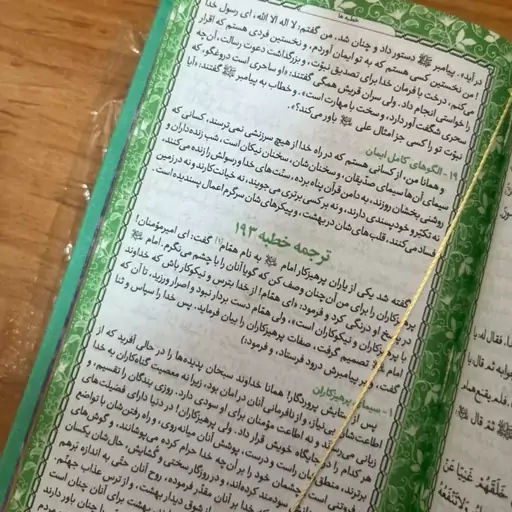 خطبه ها
در آید». پیامبر ﷺ دستور داد و چنان شد. من گفتم: لا اله الا الله، ای رسول خدا
! من نخستین کسی هستم که به تو ایمان آوردم، و نخستین فردی هستم که اقرار
می‌کنم، درخت با فرمان خدا برای تصدیق نبوّت، و بزرگداشت دعوت رسالت، آن‌چه
را خواستی انجام داد. ولی سران قریش همگی گفتند: «او ساحری است دروغگو، که
سحری شگفت آور دارد، و سخت با مهارت است». و خطاب به پیامبر ﷺ گفتند: «آیا
نبوّت تو را کسی جز امثال علی باور می‌کند؟».
۱۹ - الگوهای کامل ایمان
و همانا من، از کسانی هستم که در راه خدا از هیچ سرزنشی نمی‌ترسند، کسانی که
سیمای آن‌ها سیمای صدّیقان، و سخنان‌شان، سخنان نیکان است، شب زنده‌داران و
روشنی بخشان روزند، به دامن قرآن پناه برده، سنّت‌های خدا و رسولش را زنده می‌کنند
نه تکبّر و خودپسندی دارند، و نه بر کسی برتری می‌جویند، نه خیانت‌کارند و نه در زمین
فساد می‌کنند، قلب‌های شان در بهشت، و پیکرهای شان سرگرم اعمال پسندیده است.
ترجمه خطبه ۱۹۳
گفته شد یکی از یاران پرهیزکار امام به نام همّام(۱) گفت: ای امیرمؤمنان!
پرهیزکاران را برای من آن چنان وصف کن که گویا آنان را با چشم می‌نگرم. امام
در پاسخ او درنگی کرد و فرمود: «ای همّام! از خدا بترس و نیکوکار باش که خداوند
با پرهیزکاران و نیکوکاران است»، ولی همّام دست بردار نبود و اصرار ورزید، تا آن که
امام تصمیم گرفت صفات پرهیزکاران را بیان فرماید. پس خدا را سپاس و ثنا
گفت، و بر پیامبرش درود فرستاد، و فرمود:
۱ - سیمای پرهیزکاران
پس از ستایش پروردگار! همانا خداوند سبحان پدیده‌ها را در حالی آفرید که از
اطاعت‌شان بی‌نیاز، و از نافرمانی آنان در امان بود، زیرا نه معصیت گناه‌کاران به خدا
زیانی می‌رساند و نه اطاعت مؤمنان برای او سودی دارد. روزی بندگان را تقسیم، و
هر کدام را در جایگاه خویش قرار داد. ولی پرهیزکاران! در دنیا دارای فضیلت‌های
برترند، سخنان‌شان راست و درست، پوشش آنان میانه‌روی، و راه رفتن‌شان با تواضع
و فروتنی است، چشمان خود را بر آن‌چه خدا حرام کرده می‌پوشانند، و گوش‌های
سودمند کرده‌اند، و در روزگار سختی و گشایش، حال‌شان یکسان
که خدا بر آنان مقدّر فرموده، روح آنان حتّی به اندازه برهم
از شوق دیدار بهشت، و از ترس عذاب جهنّم.